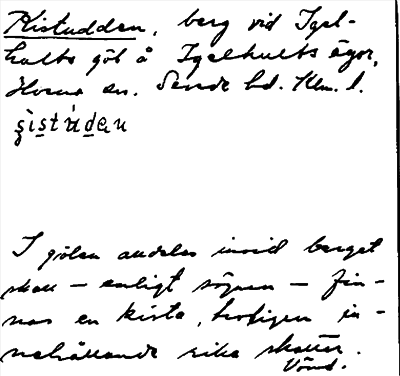 Kistudden, berg vid Igel-
hults göl å Igelhults ägor,
Horns sn.
I gölen alldeles invid berget
skall – enligt sägnen – fin-
nas en kista, troligen in-
nehållande rika skatter.
Vänd.